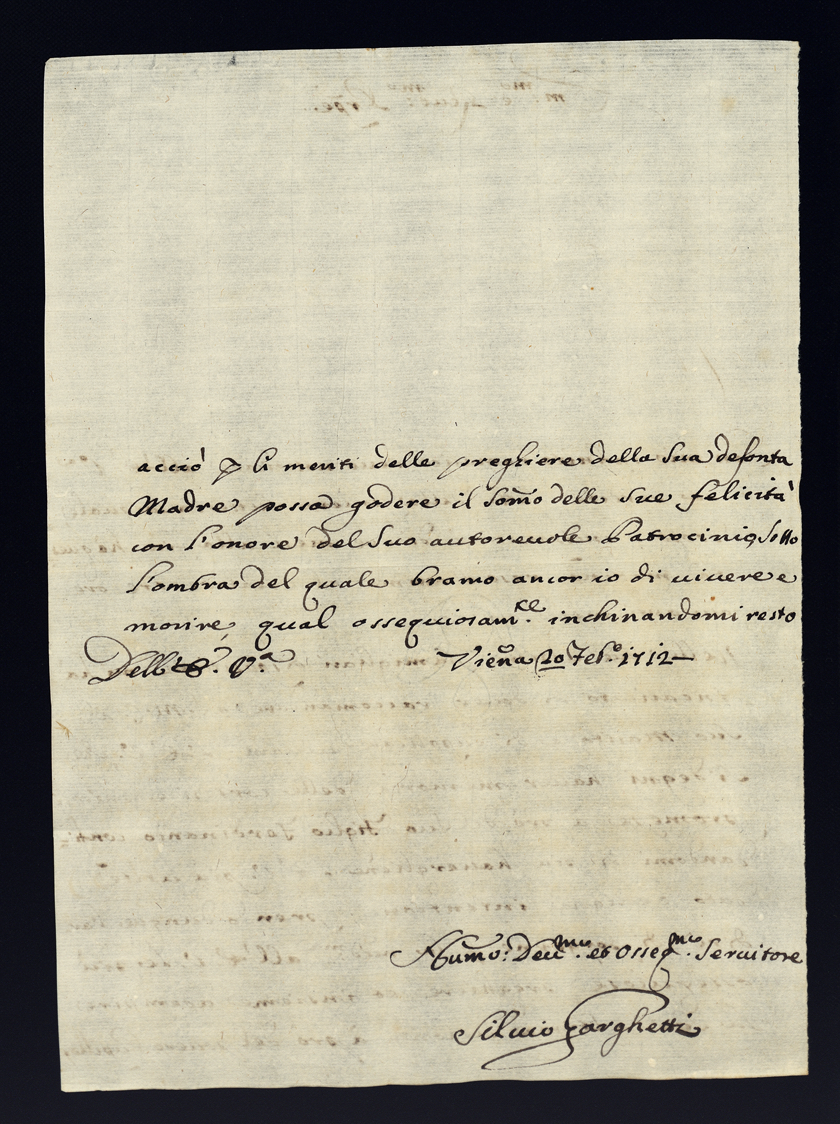 acciò p li meriti delle preghiere della sua defonta
Madre possa godere il som̃o delle sue felicità
con l'onore del suo autorevole Patrocinio, sotto
l'ombra del quale bramo ancor io di vivere e
morire, qual ossequiosam.te inchinandomi resto
Viena 20 Feb.o 1712
Hum.o: Dev.mo et Osseq.mo Servitore
Silvio Garghetti